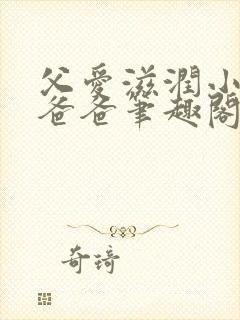 父爱滋润小
爸爸笔趣阁
奇琦